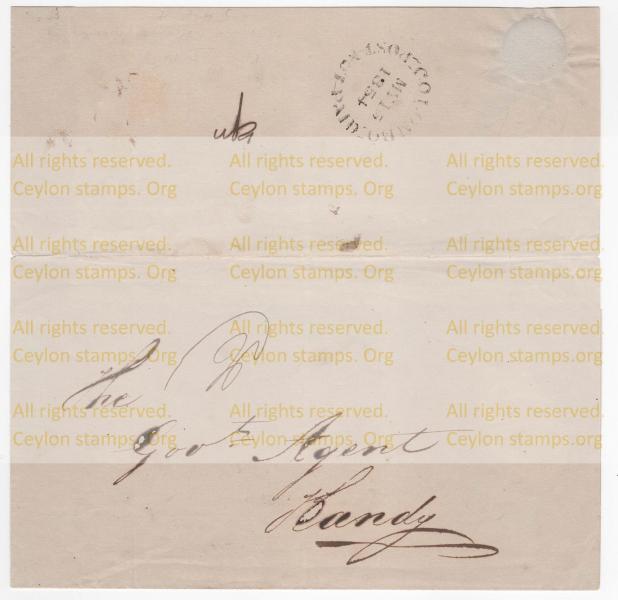 COLOMBO. POST PAID
MY 15
1854
All rights reserved. All rights reserved. All rights reserved.
Ceylon stamps. Org Ceylon stamps. Org Ceylon stamps. Org
All rights reserved. All rights reserved. All rights reserved.
Ceylon stamps.org Ceylon stamps.org Ceylon stamps.org
All rights reserved. All rights reserved. All rights reserved.
Ceylon stamps. Org Ceylon stamps. Org Ceylon stamps. Org
The
All rights reserved. All rights reserved. All rights reserved.
Ceylon stamps. Org Ceylon stamps. Org Ceylon stamps. Org
Govt Agent
Kandy